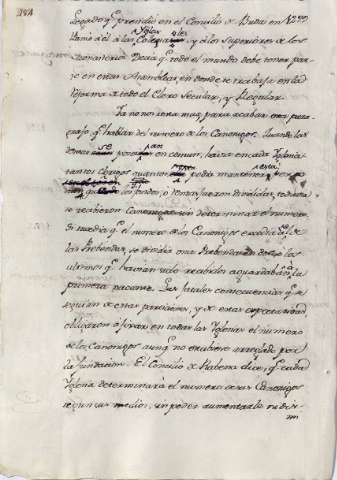 Legado q.e presidio en el Concilio de Buda en 1279
llamó á él á las Iglesias Colegiales, y á los Superiores de los
Monasterios. Dirá q.e todo el mundo debe tener par-
te en estas Asambleas, en donde se trabaja en la
reforma de todo el Clero Secular, y Regular.
Ya no resta mas, para acabar este para-
grafo, q.e hablar del numero de los Canonigos. Quando las
se ponian en comun, havia en cada Iglesia
tantos Clerigos quantos podia mantener
los fondos, ó rentas fueron divididas, todavia
se recibieron Canonigos sin determinar el numero
á medida q.e el numero de los Canonigos excedia el de
las Prebendas, se dividia una Prebenda entre los
ultimos q.e havian sido recibidos aguardaban á la
primera vacante. Las fatales consecuencias q.e se
seguian de estas particiones, y de estas expectativas
obligaron á fixar en todas las Iglesias el numero
de los Canonigos aunq.e no estubiese arreglado por
la fundacion. El Concilio de Rabena dice, q.e cada
Iglesia determinará el numero de sus Canonigos
segun sus medios, sin poder aumentarlo ni dis-